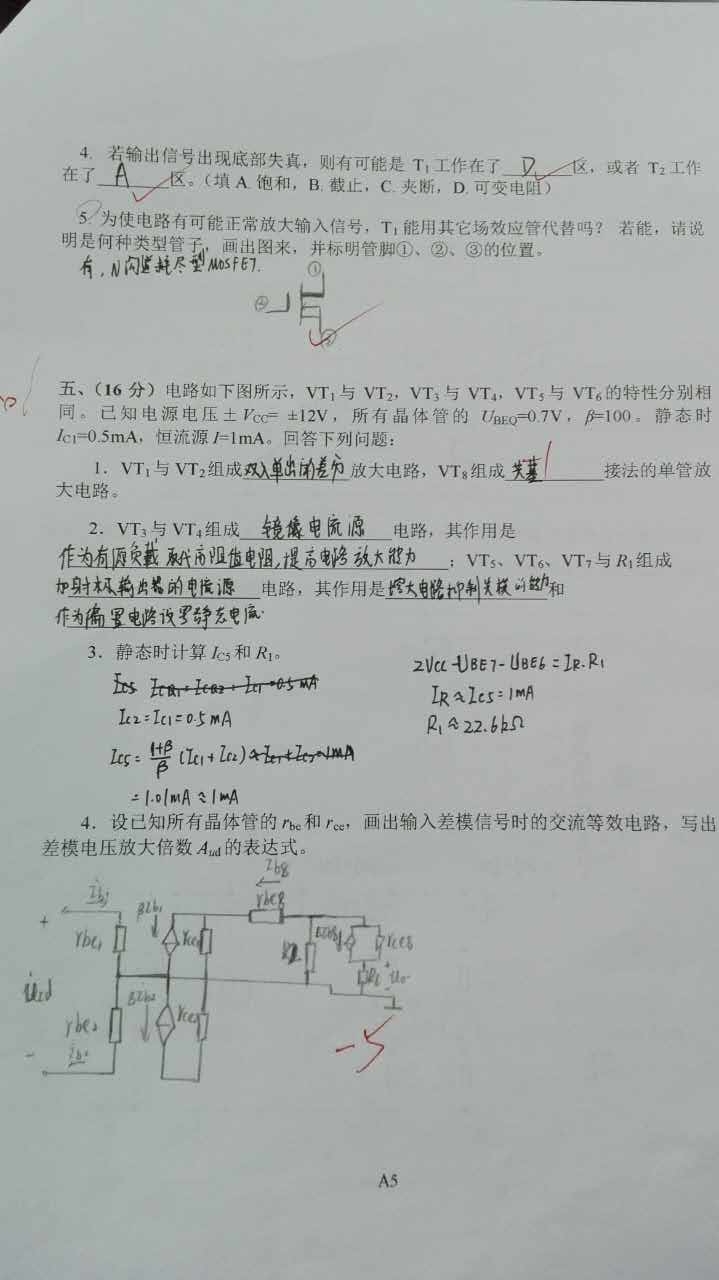 4. 若输出信号出现底部失真，则有可能是 T₁工作在了 D 区，或者 T₂工作
在了 A 区。（填 A. 饱和，B. 截止，C. 夹断，D. 可变电阻）
5. 为使电路有可能正常放大输入信号，T₁能用其它场效应管代替吗？ 若能，请说
明是何种类型管子，画出图来，并标明管脚①、②、③的位置。
有，N沟道耗尽型MOSFET.
①
五、（16 分）电路如下图所示，VT₁与 VT₂，VT₃与 VT₄，VT₅与 VT₆的特性分别相
同。已知电源电压±VCC= ±12V，所有晶体管的 UBEQ=0.7V，β=100。静态时
IC1=0.5mA，恒流源 I=1mA。回答下列问题：
1. VT₁与 VT₂组成双入单出的差分放大电路，VT₈组成 共基 接法的单管放
大电路。
2. VT₃与 VT₄组成 镜像电流源 电路，其作用是
作为有源负载 取代高阻值电阻,提高电路放大能力 ；VT₅、VT₆、VT₇与 R₁组成
加射极输出器的电流源 电路，其作用是增大电路抑制共模的能力和
作为偏置电路设置静态电流.
3. 静态时计算 IC5和 R₁。
2VCC-UBE7-UBE6=IR·R1
IC2=IC1=0.5mA
IR≈IC5=1mA
R1≈22.6kΩ
IC5= (1+β)/β (IC1+IC2)
=1.01mA≈1mA
4. 设已知所有晶体管的 rbe和 rce，画出输入差模信号时的交流等效电路，写出
差模电压放大倍数 Aud的表达式。
Ib8
rbe8
βIb1
+
rbe1
βIb2
rbe2
-
-5
A5